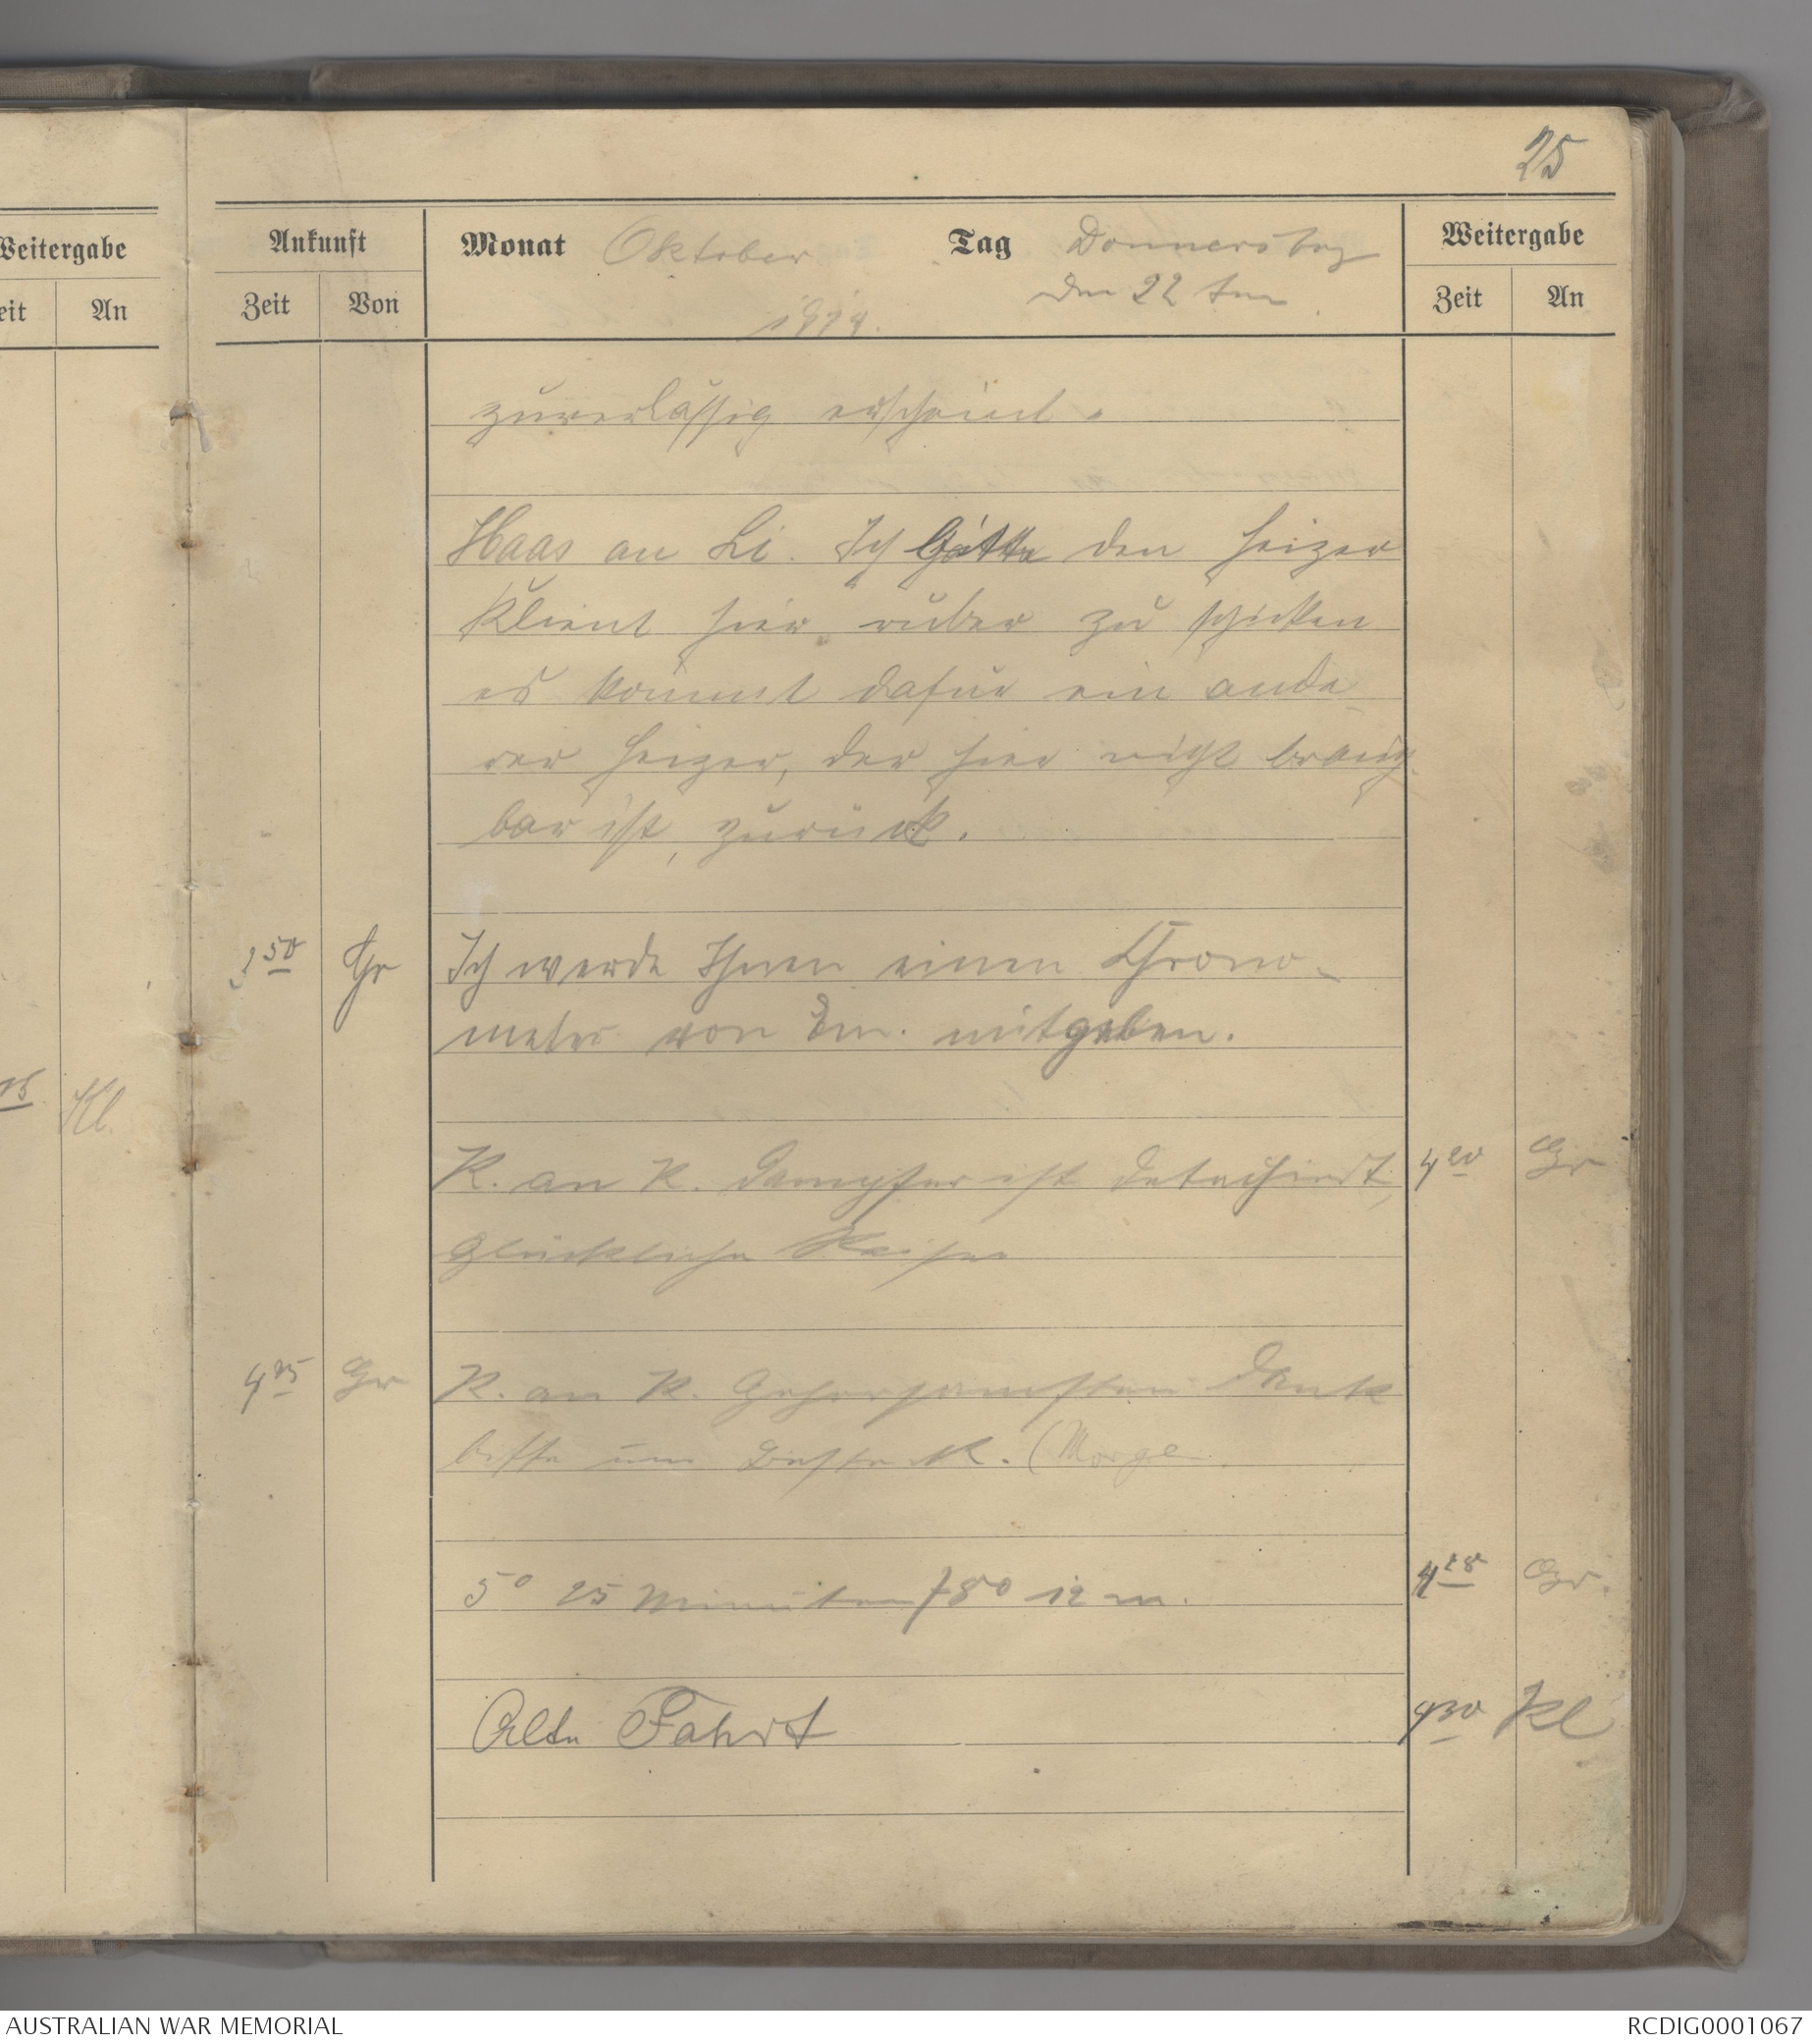 25
Weitergabe
Zeit An
Kl.
Ankunft
Zeit Von
Monat Oktober
1914.
Tag Donnerstag
den 22 ten
Weitergabe
Zeit An
zuverlässig erscheint.
Haas an Li. Ich bitte den Heizer
Klient hier rüber zu schicken
es kommt dafür ein ande
rer Heizer, der hier nicht brauch
bar ist, zurück.
3 50 Gr Ich werde Ihnen einen Chrono-
meter von Em. mitgeben.
K. an K. Dampfer ist detachirt, 4 20 Gr
Glückliche Reise
4 25 Gr K. an K. Gehorsamsten Dank
bitte um Besteck. (Morge
5° 25 Minuten 78° 12 m. 4 28 Gr.
Alte Fahrt 4 30 Kl
AUSTRALIAN WAR MEMORIAL
RCDIG0001067